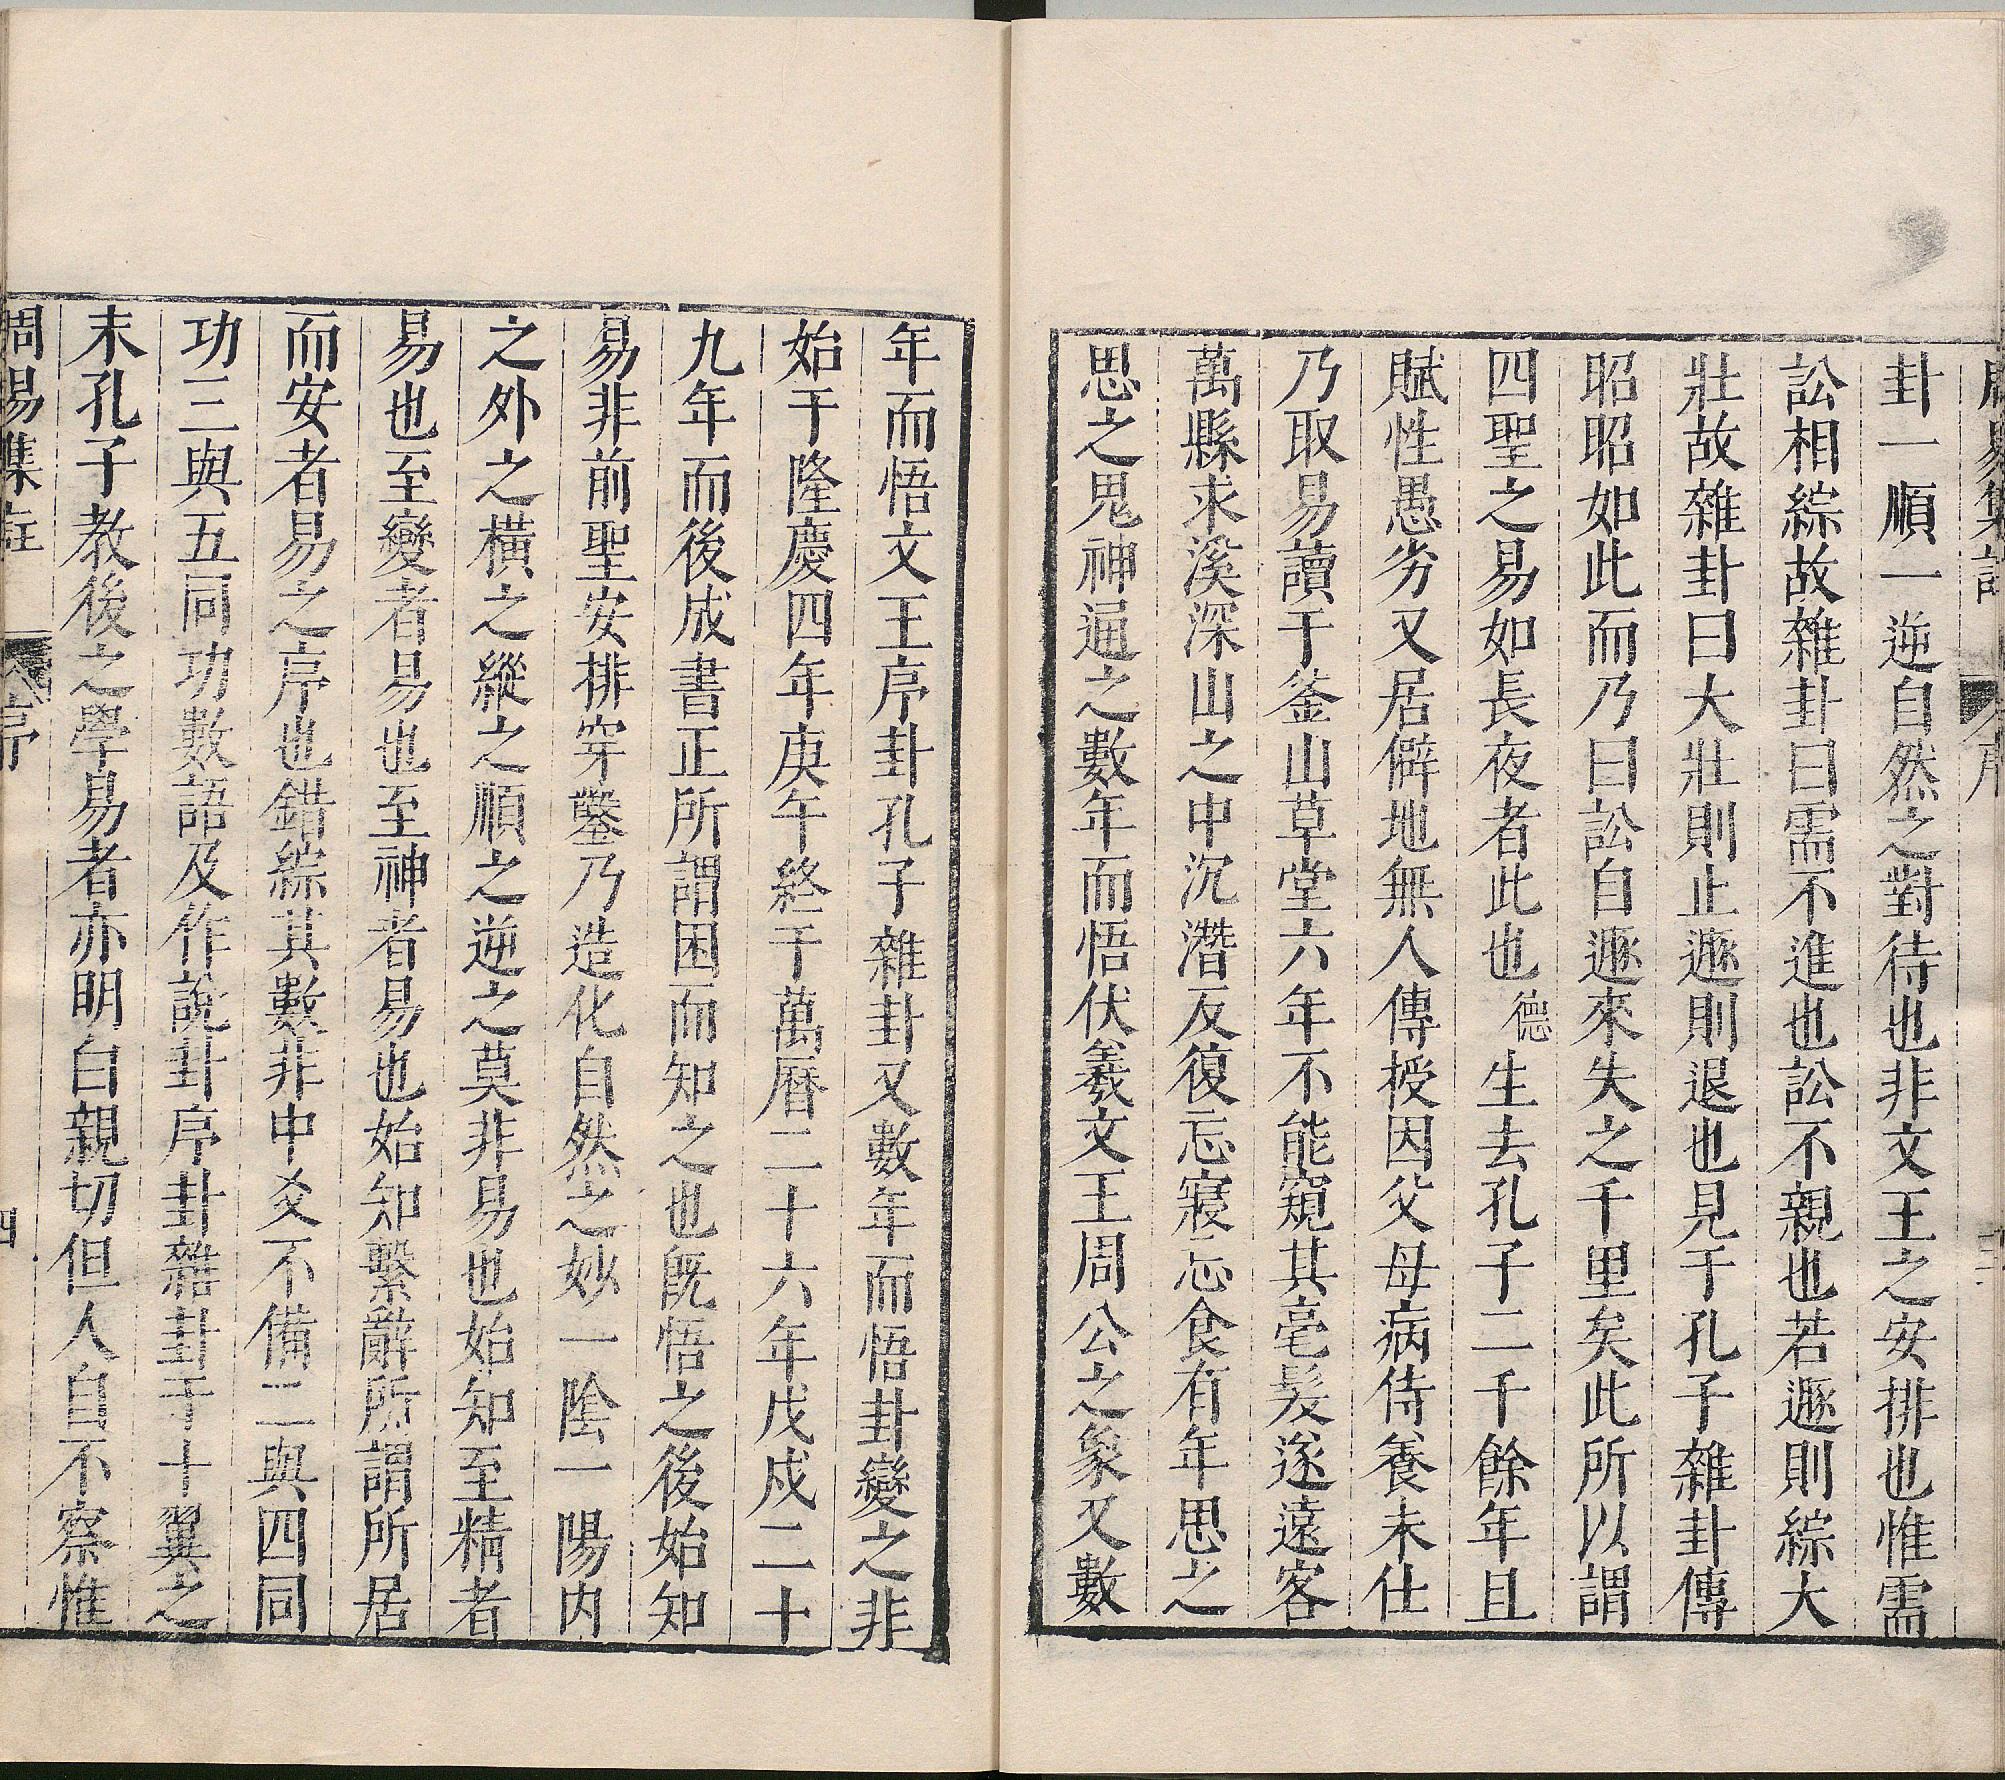 周易集註 序 三
卦一順一逆自然之對待也非文王之安排也惟需
訟相綜故雜卦曰需不進也訟不親也若遯則綜大
壯故雜卦曰大壯則止遯則退也見于孔子雜卦傳
昭昭如此而乃曰訟自遯來失之千里矣此所以謂
四聖之易如長夜者此也德生去孔子二千餘年且
賦性愚劣又居僻地無人傳授因父母病侍養未仕
乃取易讀于釜山草堂六年不能窺其毫髮遂遠客
萬縣求溪深山之中沉潛反復忘寢忘食有年思之
思之鬼神通之數年而悟伏羲文王周公之象又數
年而悟文王序卦孔子雜卦又數年而悟卦變之非
始于隆慶四年庚午終于萬曆二十六年戊戌二十
九年而後成書正所謂困而知之也既悟之後始知
易非前聖安排穿鑿乃造化自然之妙一陰一陽內
之外之橫之縱之順之逆之莫非易也始知至精者
易也至變者易也至神者易也始知繫辭所謂所居
而安者易之序也錯綜其數非中爻不備二與四同
功三與五同功數語及作說卦序卦雜卦于十翼之
末孔子教後之學易者亦明白親切但人自不察惟
周易集註 序 四